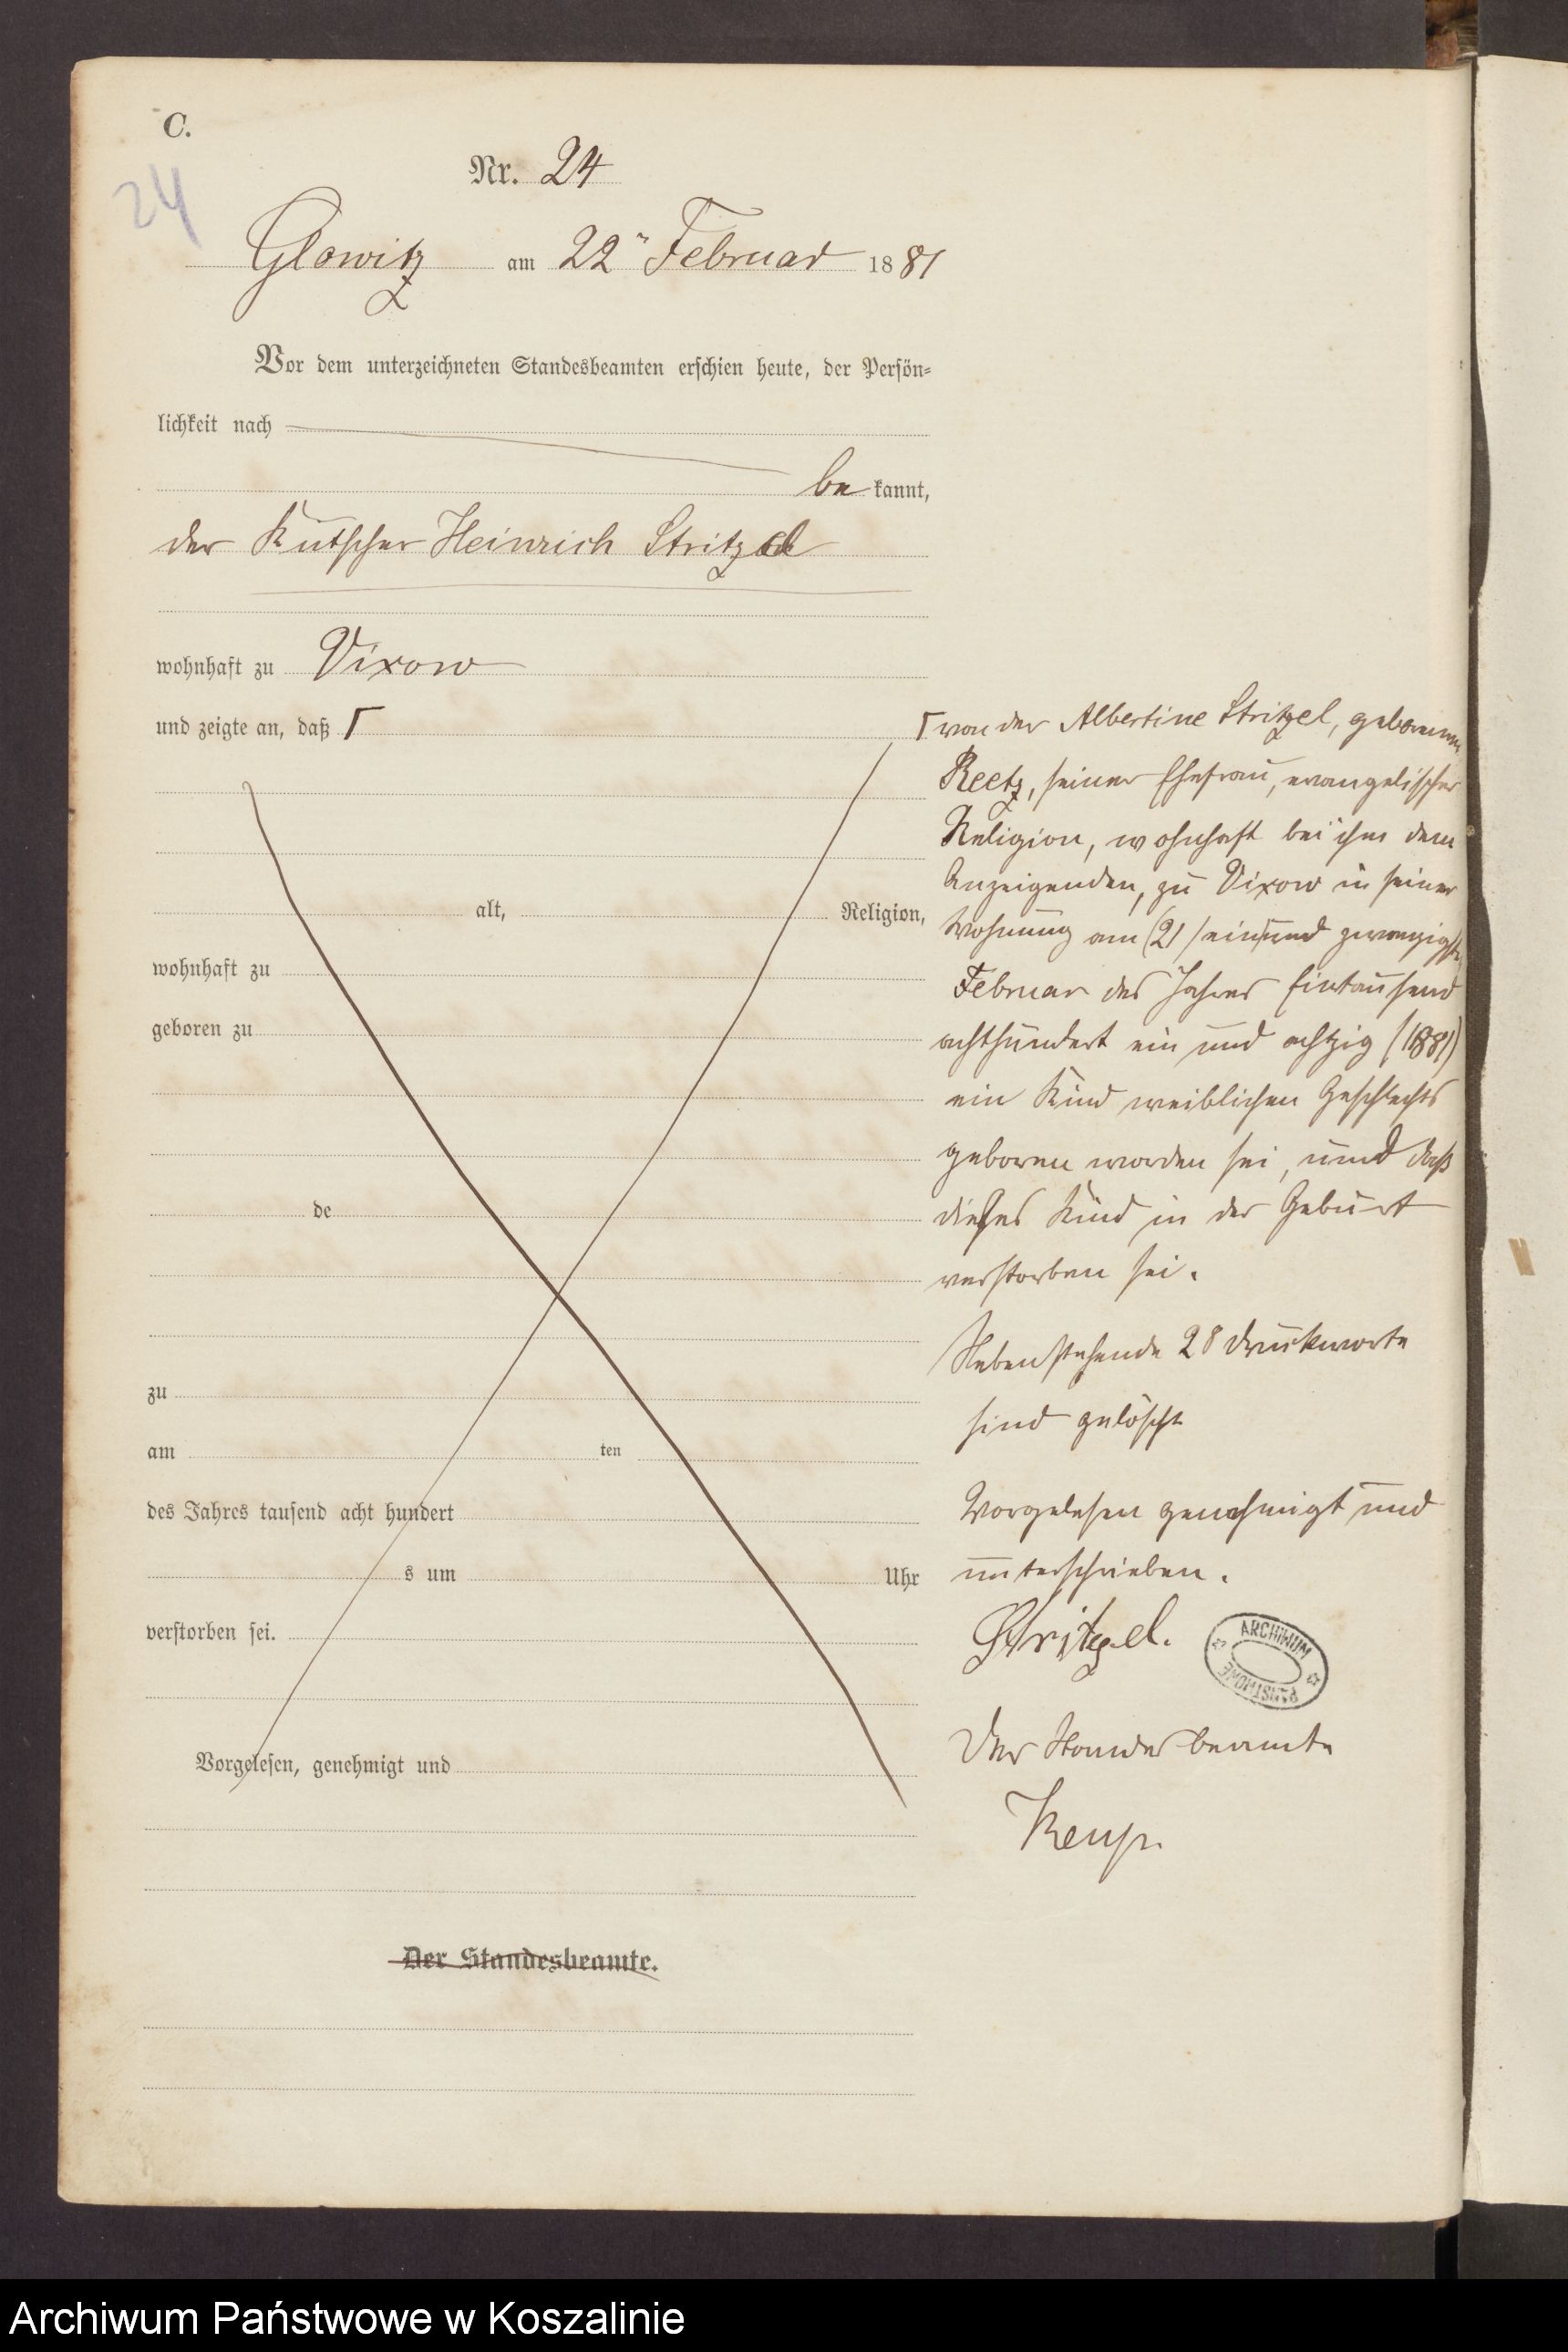 C.
24
Nr. 24
Glowitz am 22n Februar 1881
Vor dem unterzeichneten Standesbeamten erschien heute, der Persön-
lichkeit nach
be kannt,
der Kutscher Heinrich Stritzel
wohnhaft zu Vixow
und zeigte an, daß Γ
alt, Religion,
wohnhaft zu
geboren zu
de
zu
am ten
des Jahres tausend acht hundert
s um Uhr
verstorben sei.
Vorgelesen, genehmigt und
Der Standesbeamte.
Γ von der Albertine Stritzel, geborenen
Reetz, seiner Ehefrau, evangelischer
Religion, wohnhaft bei ihm dem
Anzeigenden, zu Vixow in seiner
Wohnung am (21) ein und zwanzigsten
Februar des Jahres Eintausend
achthundert ein und achtzig (1881)
ein Kind weiblichen Geschlechts
geboren worden sei, und daß
dieses Kind in der Geburt
verstorben sei.
Nebenstehende 28 Druckworte
sind gelöscht
Vorgelesen genehmigt und
unterschrieben.
Stritzel.
ARCHIWUM
PAŃSTWOWE
Der Standesbeamte
Archiwum Państwowe w Koszalinie